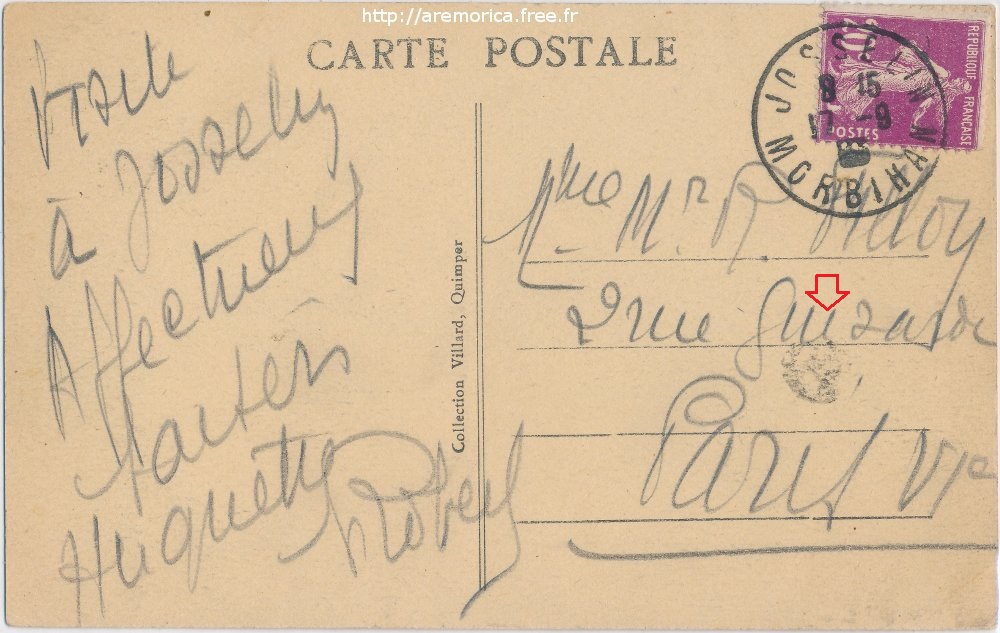 http://aremorica.free.fr
CARTE POSTALE
Visite
à Josselin
Affectueux
Huguette
Robert
Collection Villard, Quimper
Mme Mr R.
2 rue Guisarde
Paris VIe
JOSSELIN
8 15
17 -9
MORBIHAN
REPUBLIQUE FRANÇAISE
POSTES